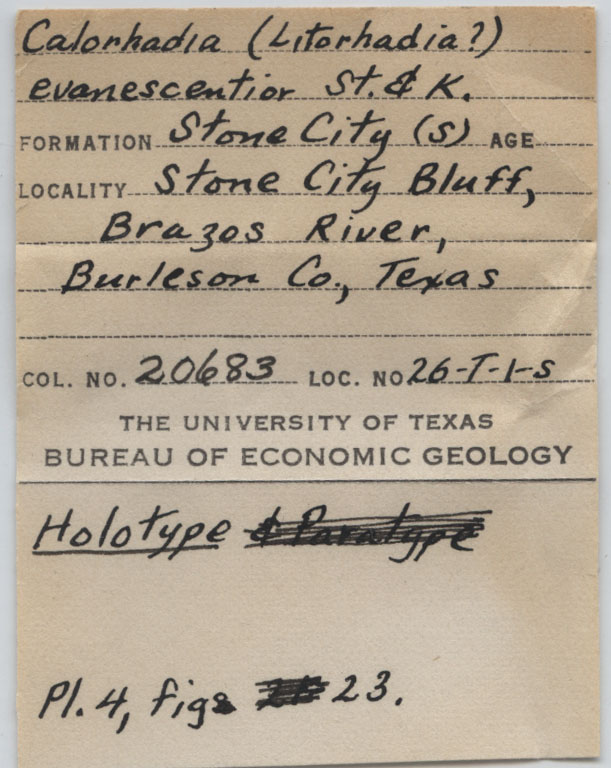 Calorhadia (Litorhadia?)
evanescentior St. & K.
FORMATION Stone City (s) AGE
LOCALITY Stone City Bluff,
Brazos River,
Burleson Co., Texas
COL. NO. 20683 LOC. NO 26-T-1-S
THE UNIVERSITY OF TEXAS
BUREAU OF ECONOMIC GEOLOGY
Holotype & Paratype
Pl. 4, figs 23.